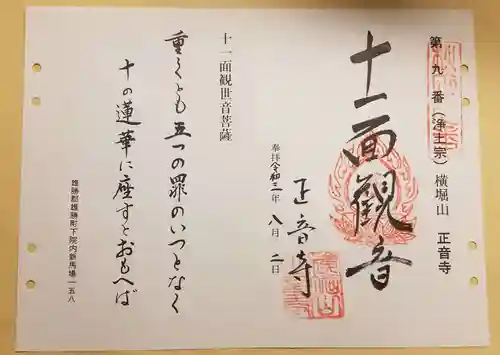 第九番（浄土宗）横堀山　正音寺
十一面観音
正音寺
奉拝令和三年八月二日
十一面観世音菩薩
重くとも五つの罪のいつとなく
十の蓮華に座すとおもへば
雄勝郡雄勝町下院内新馬場一五八